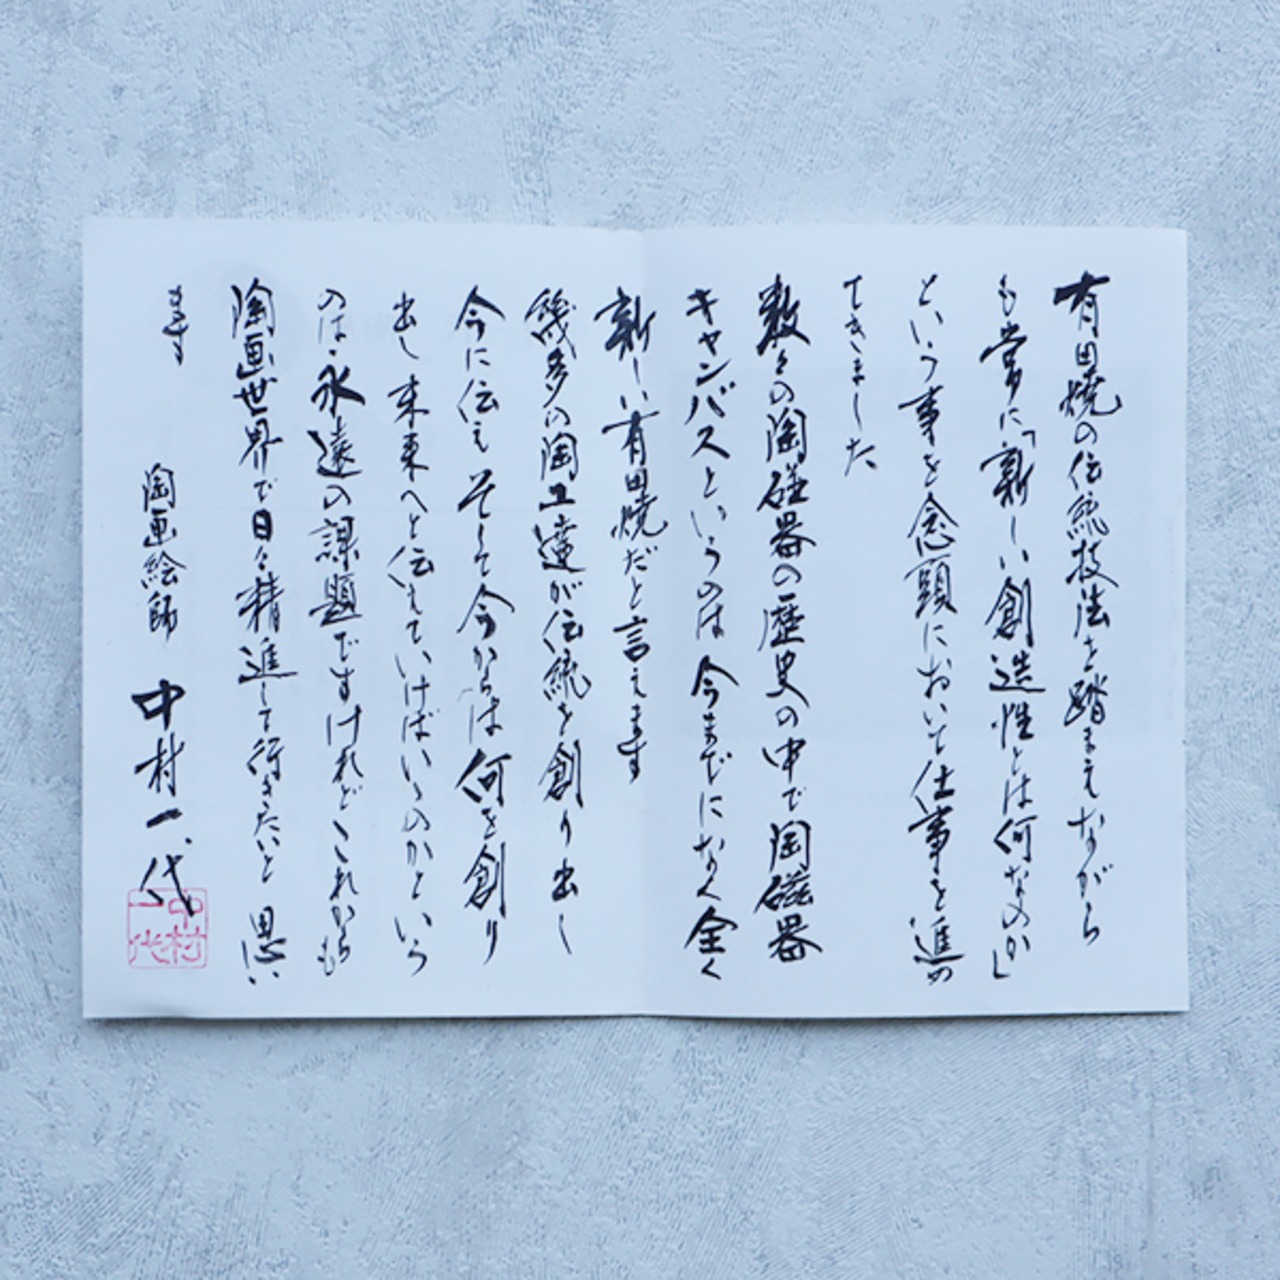 有田焼の伝統技法を踏まえながら
も常に「新しい創造性とは何なのか」
という事を念頭において仕事を進め
てきました
数々の陶磁器の歴史の中で陶磁器
キャンバスというのは今までになく全く
新しい有田焼だと言えます
幾多の陶工達が伝統を創り出し
今に伝えそして今からは何を創り
出し未来へと伝えていけばいゝのかという
のは、永遠の課題ですけれどこれからも
陶画世界で日々精進して行きたいと思い
ます
陶画絵師 中村一代
中村
一代